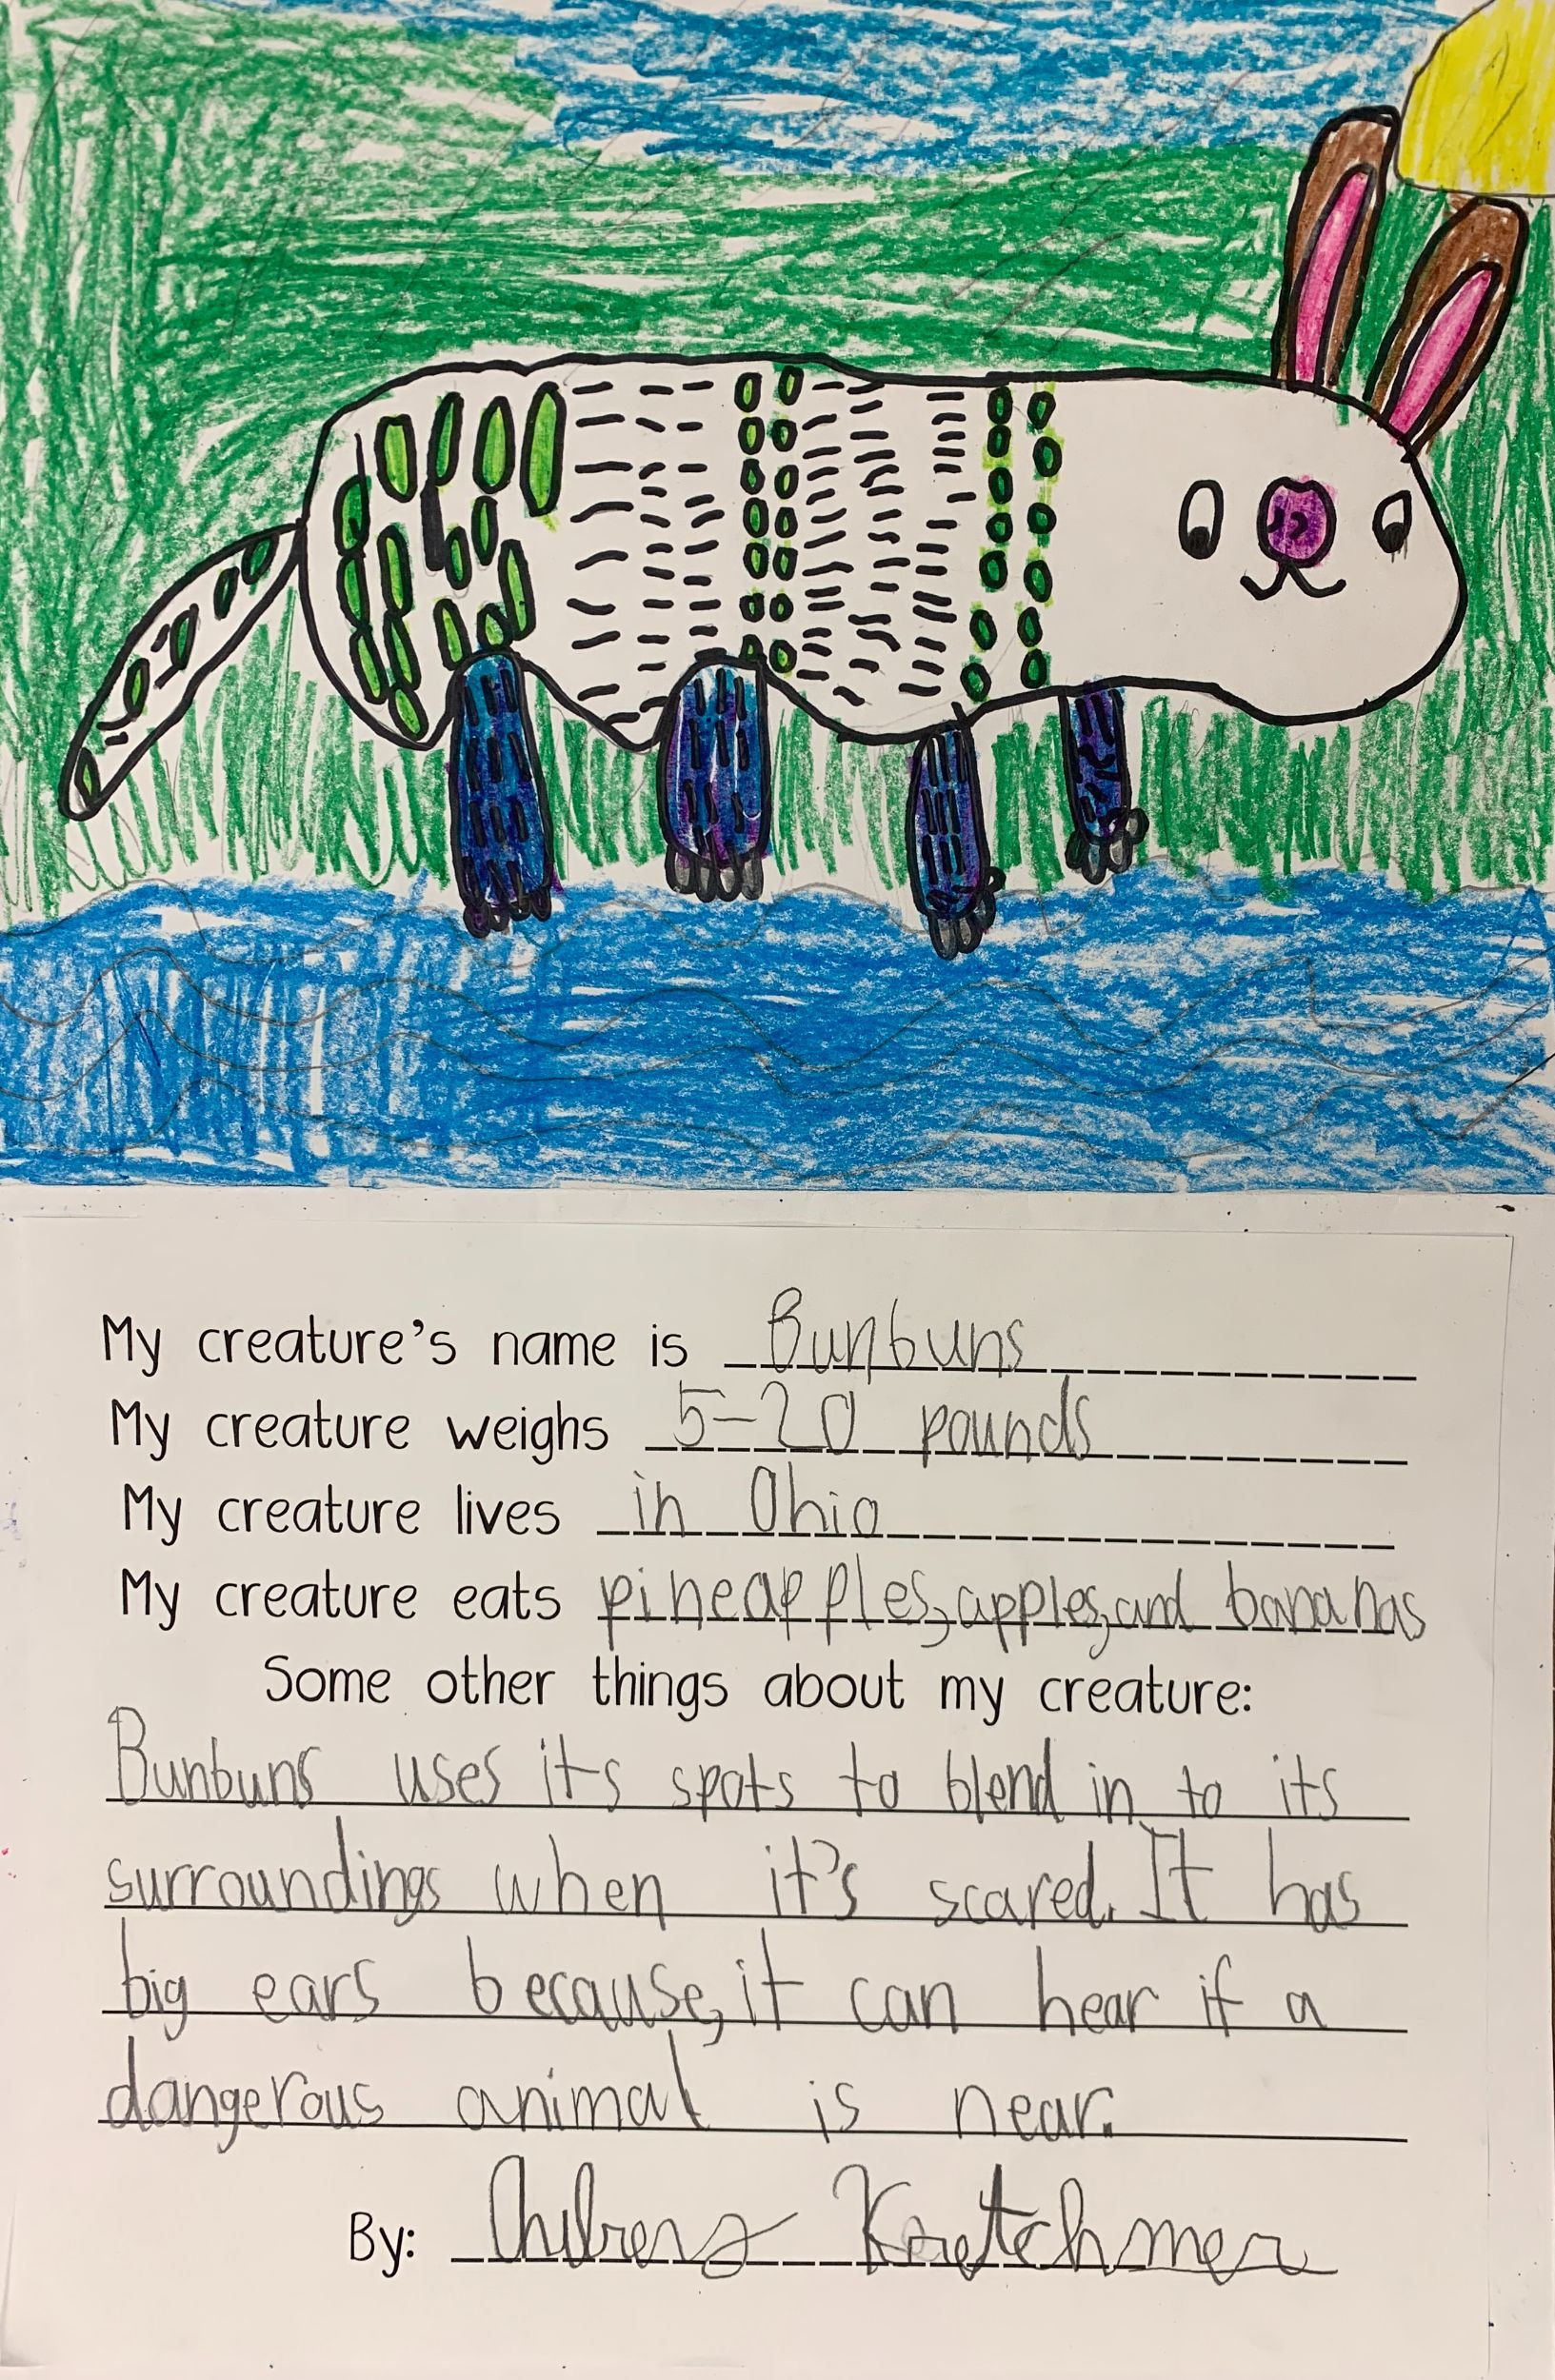 My creature's name is Bunbuns
My creature weighs 5-20 pounds
My creature lives in Ohio
My creature eats pineapples, apples, and bananas
Some other things about my creature:
Bunbuns uses its spots to blend in to its
surroundings when it's scared. It has
big ears because, it can hear if a
dangerous animal is near.
By: Kretchmer